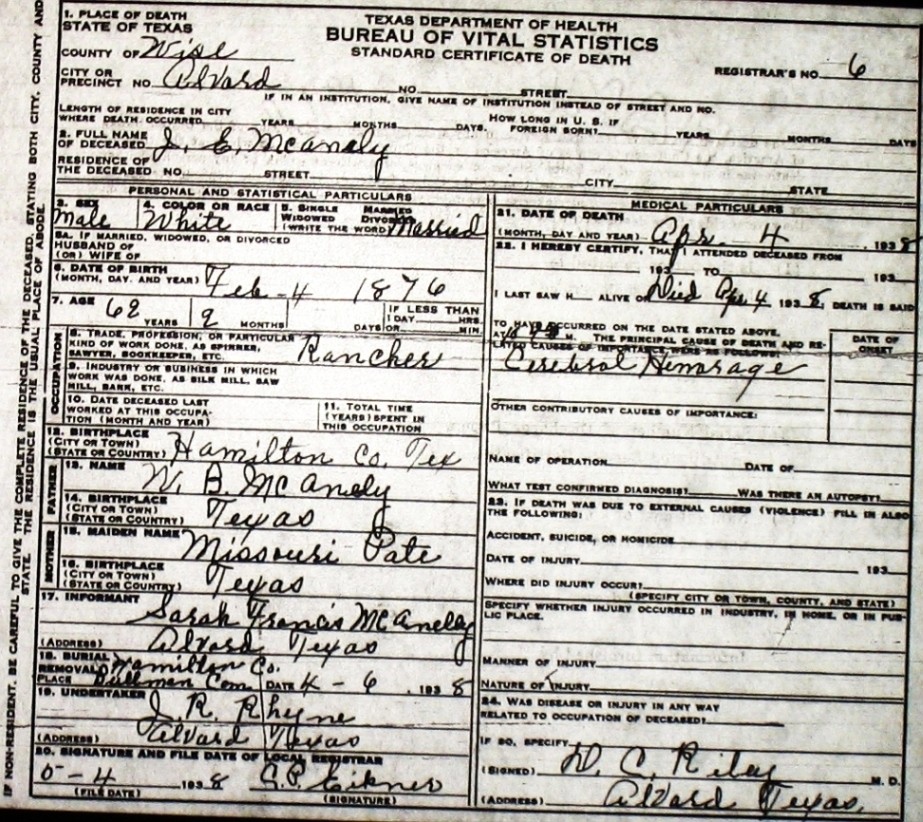 TEXAS DEPARTMENT OF HEALTH
BUREAU OF VITAL STATISTICS
STANDARD CERTIFICATE OF DEATH
1. PLACE OF DEATH
STATE OF TEXAS
COUNTY OF Wise
REGISTRAR'S NO. 6
CITY OR
PRECINCT NO. Alvord NO. STREET
IF IN AN INSTITUTION, GIVE NAME OF INSTITUTION INSTEAD OF STREET AND NO.
LENGTH OF RESIDENCE IN CITY
WHERE DEATH OCCURRED YEARS MONTHS DAYS. HOW LONG IN U. S. IF FOREIGN BORN? YEARS MONTHS DAYS
2. FULL NAME
OF DECEASED J. E. McAnaly
RESIDENCE OF
THE DECEASED NO. STREET CITY STATE
PERSONAL AND STATISTICAL PARTICULARS
3. SEX Male
4. COLOR OR RACE White
5. SINGLE MARRIED
WIDOWED DIVORCED
(WRITE THE WORD) Married
5A. IF MARRIED, WIDOWED, OR DIVORCED
HUSBAND OF
(OR) WIFE OF
6. DATE OF BIRTH
(MONTH, DAY, AND YEAR) Feb-4 1876
7. AGE 62 YEARS 2 MONTHS DAYS
IF LESS THAN
1 DAY HRS.
OR MIN.
OCCUPATION
8. TRADE, PROFESSION, OR PARTICULAR
KIND OF WORK DONE, AS SPINNER,
SAWYER, BOOKKEEPER, ETC. Rancher
9. INDUSTRY OR BUSINESS IN WHICH
WORK WAS DONE, AS SILK MILL, SAW
MILL, BANK, ETC.
10. DATE DECEASED LAST
WORKED AT THIS OCCUPA-
TION (MONTH AND YEAR)
11. TOTAL TIME
(YEARS) SPENT IN
THIS OCCUPATION
12. BIRTHPLACE
(CITY OR TOWN)
(STATE OR COUNTRY) Hamilton Co. Tex
FATHER
13. NAME W. B. McAnely
14. BIRTHPLACE
(CITY OR TOWN)
(STATE OR COUNTRY) Texas
MOTHER
15. MAIDEN NAME Missouri Pate
16. BIRTHPLACE
(CITY OR TOWN)
(STATE OR COUNTRY) Texas
17. INFORMANT
Sarah Francis McAnelly
(ADDRESS) Alvord Texas
18. BURIAL Hamilton Co.
REMOVAL
PLACE Cem DATE 4 - 6 193 8
19. UNDERTAKER
J. R. Rhyne
(ADDRESS) Alvord Texas
20. SIGNATURE AND FILE DATE OF LOCAL REGISTRAR
5-4 193 8
(FILE DATE) (SIGNATURE)
MEDICAL PARTICULARS
21. DATE OF DEATH
(MONTH, DAY AND YEAR) Apr. 4 193 8
22. I HEREBY CERTIFY, THAT I ATTENDED DECEASED FROM
193 TO 193
I LAST SAW H ALIVE ON Died Apr 4 193 8, DEATH IS SAID
TO HAVE OCCURRED ON THE DATE STATED ABOVE,
AT M. THE PRINCIPAL CAUSE OF DEATH AND RE-
LATED CAUSES OF IMPORTANCE WERE AS FOLLOWS:
DATE OF
ONSET
Cerebral Hemorage
OTHER CONTRIBUTORY CAUSES OF IMPORTANCE:
NAME OF OPERATION DATE OF
WHAT TEST CONFIRMED DIAGNOSIS? WAS THERE AN AUTOPSY?
23. IF DEATH WAS DUE TO EXTERNAL CAUSES (VIOLENCE) FILL IN ALSO
THE FOLLOWING:
ACCIDENT, SUICIDE, OR HOMICIDE
DATE OF INJURY 193
WHERE DID INJURY OCCUR?
(SPECIFY CITY OR TOWN, COUNTY, AND STATE)
SPECIFY WHETHER INJURY OCCURRED IN INDUSTRY, IN HOME, OR IN PUB-
LIC PLACE.
MANNER OF INJURY
NATURE OF INJURY
24. WAS DISEASE OR INJURY IN ANY WAY
RELATED TO OCCUPATION OF DECEASED?
IF SO, SPECIFY
(SIGNED) D. C. Riley M. D.
(ADDRESS) Alvord Texas.
IF NON-RESIDENT, BE CAREFUL TO GIVE THE COMPLETE RESIDENCE OF THE DECEASED, STATING BOTH CITY, COUNTY AND
STATE. THE RESIDENCE IS THE USUAL PLACE OF ABODE.